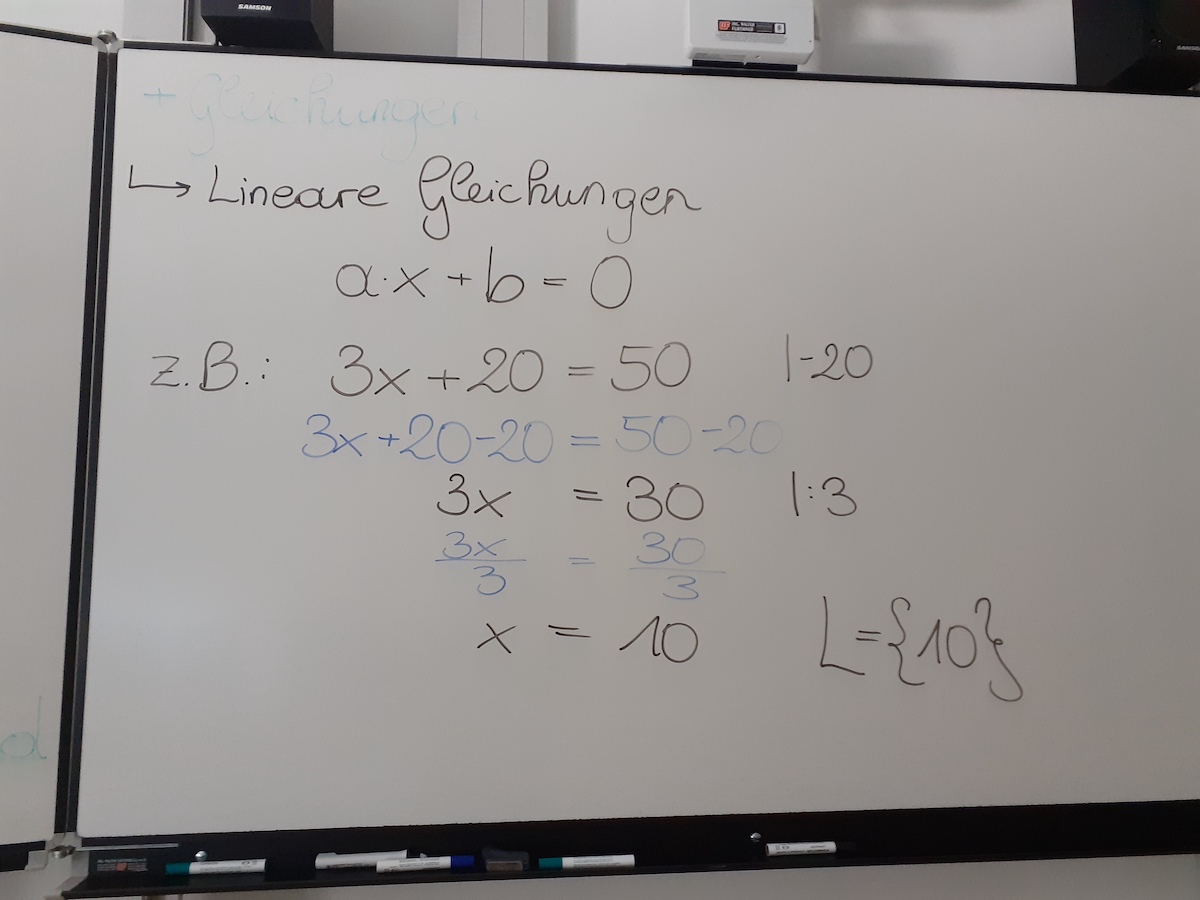 SAMSON
+ Gleichungen
↳ Lineare Gleichungen
a·x + b = 0
z.B.: 3x + 20 = 50 |-20
3x + 20 - 20 = 50 - 20
3x = 30 |:3
3x/3 = 30/3
x = 10 L = {10}
d